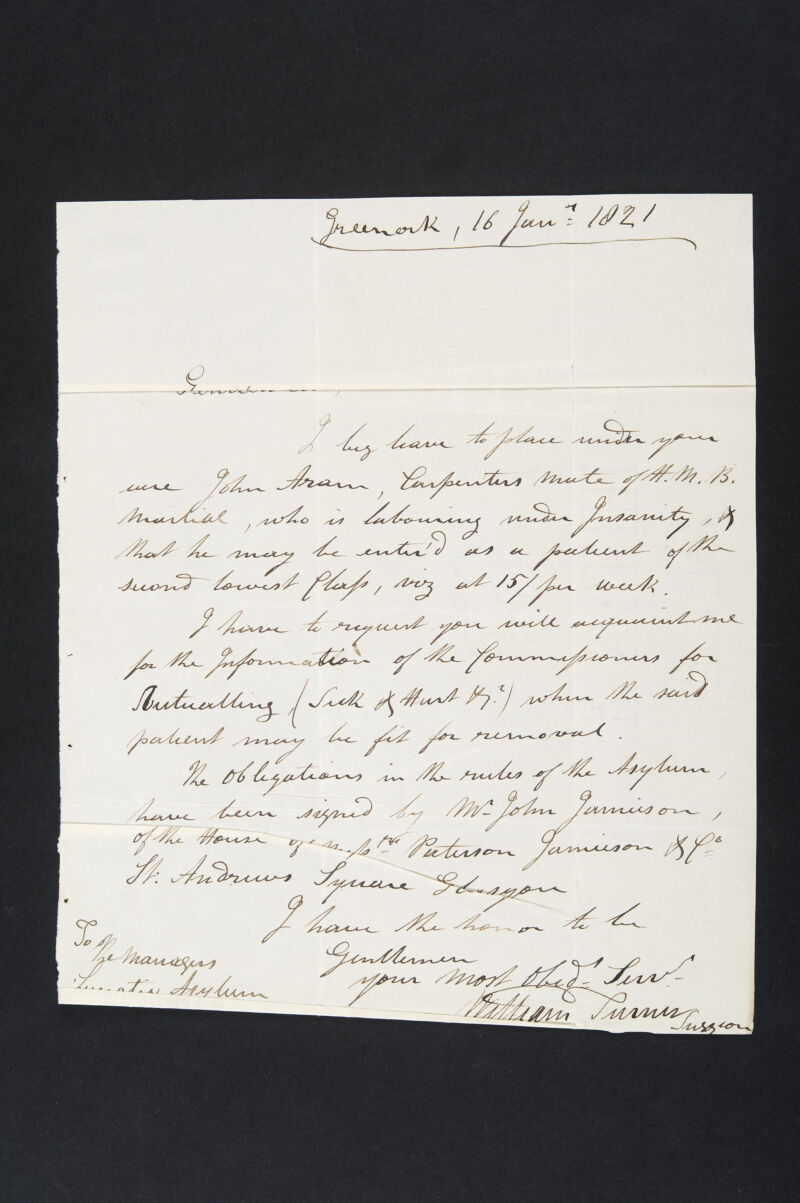 Greenock, 16 Janʳ 1821
Gentlemen,
I beg leave to place under your
care John Aram, Carpenters Mate of H. M. B.
Martial, who is labouring under Insanity, &
that he may be enter'd as a patient of the
second lowest Class, viz at 15/ per week.
I have to request you will acquaint me
for the Information of the Commissioners for
Victualling (Sick & Hurt &cᵃ) when the said
patient may be fit for removal.
The Obligations in the rules of the Asylum,
have been signed by Mʳ John Jamieson,
of the House of Messʳˢ Paterson Jamieson & Cᵒ
St. Andrews Square Glasgow
I have the honor to be
Gentlemen
your most Obedᵗ Servᵗ
William Turner
Surgeon
To the Managers
Lunatic Asylum